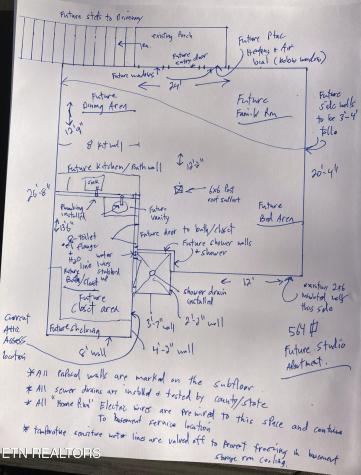 Future steps to Driveway
existing Porch
Future entry door
Future windows
Future Ptac
Heating + Air
24'
Future
Dining Area
Future
Family Rm
Future
side walls
to be 3'-4'
8' wall
Future Kitchen/Bath wall
12'-2"
20'-4"
26'-8"
sink
Plumbing
installed
6x6 Post
roof support
Future
vanity
Future
Bed Area
toilet
flange
Future door to bath/closet
Future shower walls
+ shower
water
lines
stubbed
up
shower drain
installed
12'
existing 2x6
insulated wall
this side
Future
closet area
564
Future Studio
Future shelving
3'-2" wall
2'-2" wall
4'-2" wall
8' wall
Current
Attic
Access
location
* All parked walls are marked on the subfloor.
* All sewer drains are installed + tested by county/state
* All "Home Run" Electric wires are pre wired to this space and continue
To basement service location
* temperature sensitive water lines are valved off to prevent freezing in basement
storage rm
ETN REALTORS